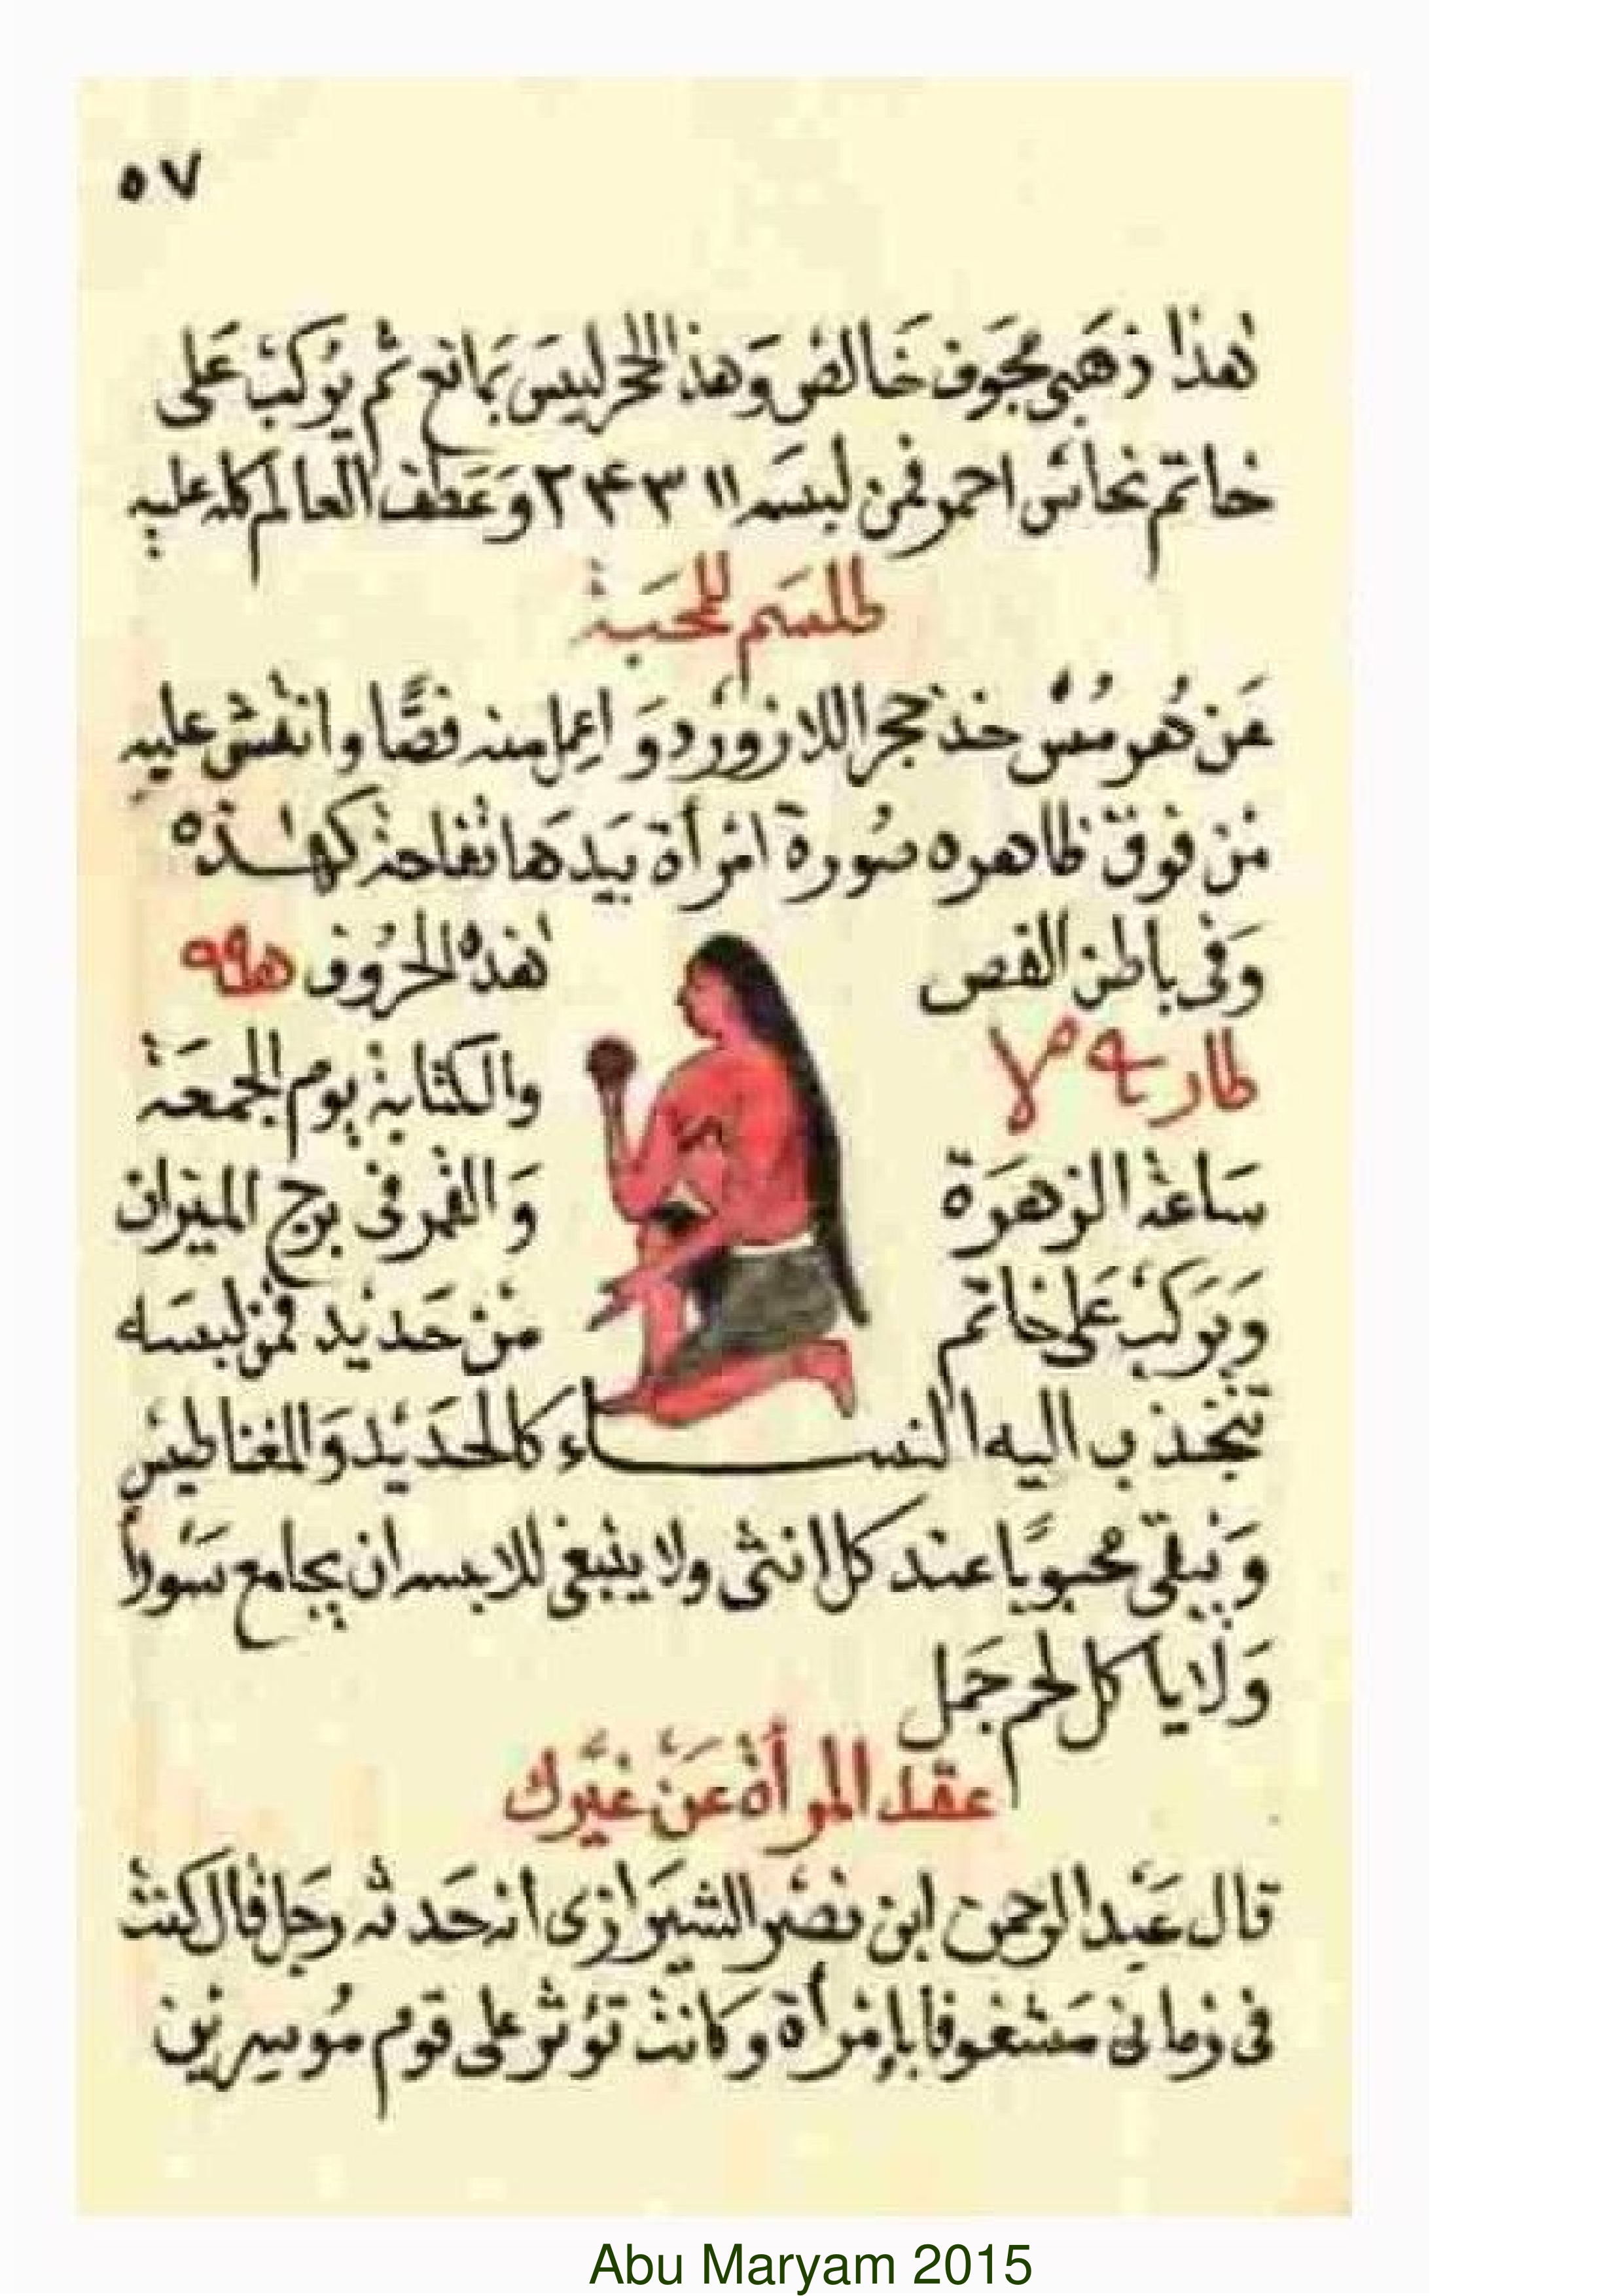 ٥٧
هذا ذهبي مجوف خالص وهذا الحجر ليس بمانع ثم يركب على
خاتم نحاس احمر فمن لبسه ١١ ٣ ۴ ٢ وعطف العالم كله عليه
طلسم للمحبة
عن هرمس خذ حجر اللازورد و اعمل منه فصًّا وانقش عليه
من فوق ظاهره صورة امرأة بيدها تفاحة كهذه
وفى باطن الفص هذه الحروف
والكتابة يوم الجمعة
ساعة الزهرة والقمر فى برج الميزان
ويركب على خاتم من حديد فمن لبسه
تنجذب اليه النساء كالحديد والمغناطيس
ويبقى محبوبًا عند كل انثى ولا ينبغى للابسه ان يجامع
ولا ياكل لحم جمل
عقد المرأة عن غيرك
قال عبد الرحمن ابن نصر الشيرازى انه حدثه رجل قال كنت
فى زمانى مشغوفا بإمرأة وكانت تؤثر على قوم موسرين
Abu Maryam 2015